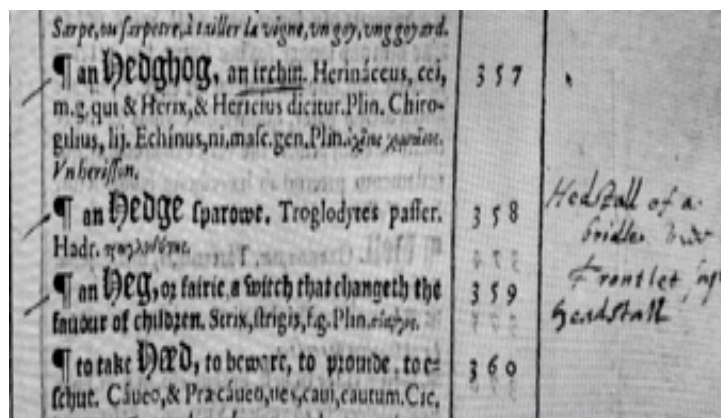 Sarpe, ou sarpette, à tailler la vigne, vn goy, vng goyard.
¶ an Hedghog, an irchin. Herináceus, cei, 357
m.g. qui & Herix, & Hericius dicitur. Plin. Chiro-
gilius, lij. Echínus, ni, masc. gen. Plin.
Vn herisson.
¶ an Hedge sparowe. Troglodytes passer. 358
Hadr.
¶ an Heg, or fairie, a witch that changeth the 359
fauour of children. Strix, strigis, f.g. Plin.
¶ to take Hæd, to beware, to prouide, to e- 360
schue. Cáueo, & Præcáueo, ues, caui, cautum. Cic.
Hedstall of a
bridle
Frontlet
Headstall